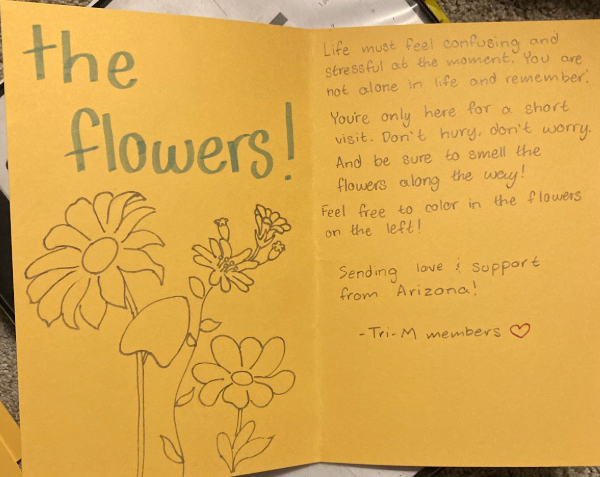 the
flowers!
Life must feel confusing and
stressful at the moment. You are
not alone in life and remember:
You're only here for a short
visit. Don't hury, don't worry.
And be sure to smell the
flowers along the way!
Feel free to color in the flowers
on the left!
Sending love & support
from Arizona!
-Tri-M members ♡